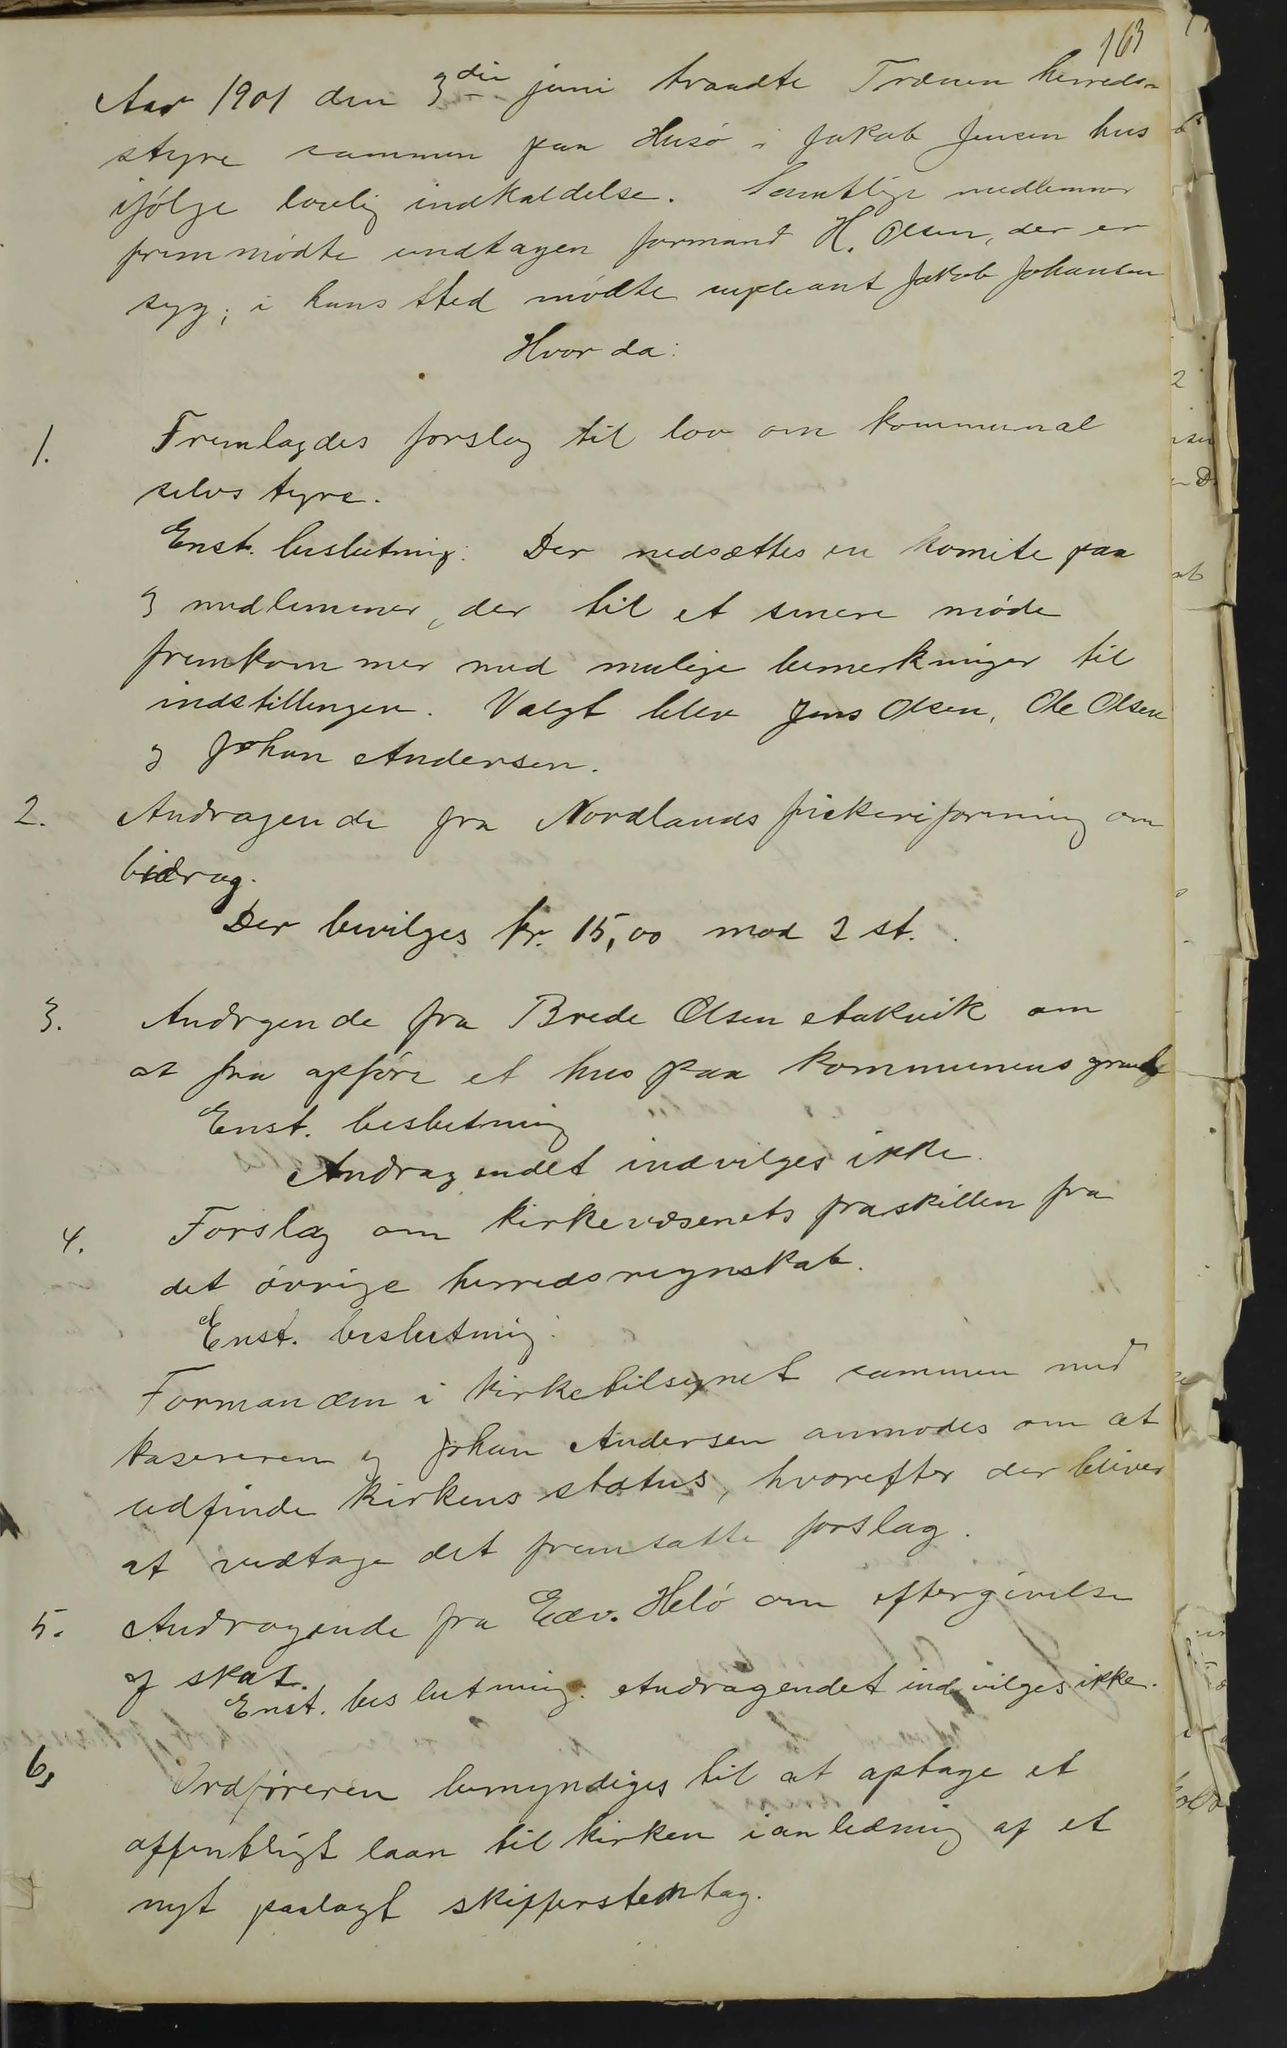 163
Aar 1901 den 3die juni traadte Trænen herreds-
styre sammen paa Husø i Jakob Jensen hus
ifølge lovlig indkaldelse. Samtlige medlemmer
fremmødte undtagen formand H. Olsen, der er
syg; i hans sted mødte supleant Jakob Johansen
Hvor da:
1. Fremlagdes forslag til lov om kommunal
selvstyre.
Enst. beslutning: Der nedsættes en komite paa
3 medlemmer, der til et senere møde
fremkommer med mulige bemerkninger til
indstillingen. Valgt blev Jens Olsen, Ole Olsen
og Johan Andersen.
2. Andragende fra Nordlands fiskeriforening om
bidrag.
Der bevilges kr. 15,00 mod 2 st.
3. Andrgende fra Brede Olsen Stakvik om
at faa opføre et hus paa kommunens grund
Enst. beslutning
Andragendet indvilges ikke.
4. Forslag om kirkevæsenets fraskillen fra
det øvrige herredsregnskab.
Enst. beslutning:
Formanden i kirketilsynet sammen med
kasereren og Johan Andersen anmodes om at
udfinde kirkens status, hvorefter der bliver
at vedtage det fremsatte forslag.
5. Andragende fra Edv. Helø om eftergivelse
af skat.
Enst. beslutning: Andragendet indvilges ikke.
6, Ordføreren bemyndiges til at optage et
offentligt laan til kirken i anledning af et
nyt paalagt skifferstentag.